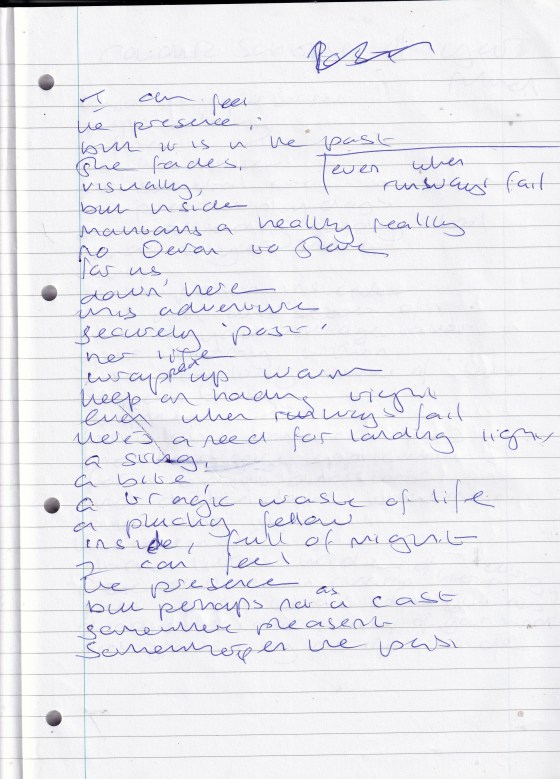 I can feel
the presence,
but it is in the past
She fades,
visually,
even when
runways fail
but inside
maintains a healthy reality
no Devon to
for us
down here
this adventure
securely 'past'
her life
wrapped up warm
keep on holding tight
even when runways fail
there's a need for landing lights
a sting,
a bite,
a tragic waste of life
a plucky fellow
inside, full of might
I can feel
the presence
but perhaps not as a cast
somewhere pleasent
the past